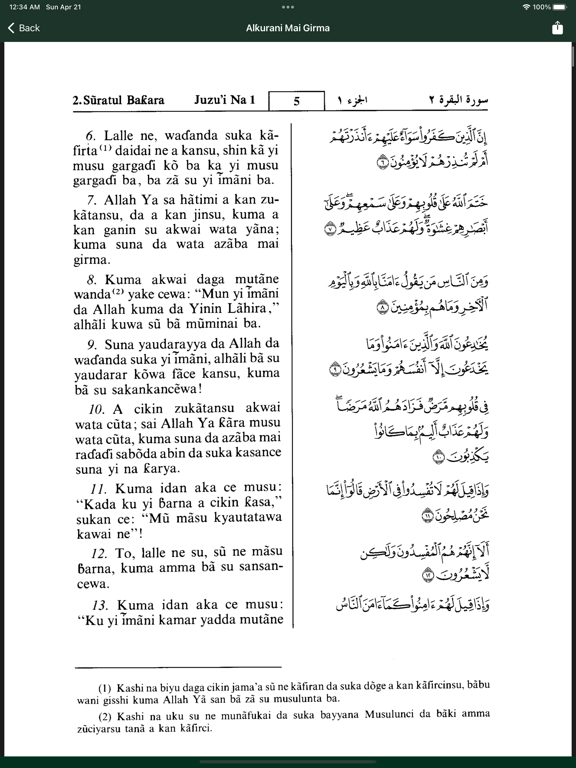 12:34 AM Sun Apr 21
100%
Back
Alƙurani Mai Girma
2.Sũratul Baƙara Juzu'i Na 1 5 الجزء ١ سورة البقرة ٢
6. Lalle ne, waɗanda suka kã-
firta(1) daidai ne a kansu, shin kã yi
musu gargaɗi kõ ba ka yi musu
gargaɗi ba, ba zã su yi ĩmãni ba.
7. Allah Ya sa hãtimi a kan zu-
kãtansu, da a kan jinsu, kuma a
kan ganin su akwai wata yãna;
kuma suna da wata azãba mai
girma.
8. Kuma akwai daga mutãne
wanda(2) yake cewa: “Mun yi ĩmãni
da Allah kuma da Yinin Lãhira,”
alhãli kuwa sũ bã mũminai ba.
9. Suna yaudarayya da Allah da
waɗanda suka yi ĩmãni, alhãli bã su
yaudarar kõwa fãce kansu, kuma
bã su sakankancẽwa!
10. A cikin zukãtansu akwai
wata cũta; sai Allah Ya ƙãra musu
wata cũta, kuma suna da azãba mai
raɗaɗi sabõda abin da suka kasance
suna yi na ƙarya.
11. Kuma idan aka ce musu:
“Kada ku yi ɓarna a cikin ƙasa,”
sukan ce: “Mũ mãsu kyautatawa
kawai ne”!
12. To, lalle ne su, sũ ne mãsu
ɓarna, kuma amma bã su sansan-
cewa.
13. Kuma idan aka ce musu:
“Ku yi ĩmãni kamar yadda mutãne
إِنَّ ٱلَّذِينَ كَفَرُوا۟ سَوَآءٌ عَلَيْهِمْ ءَأَنذَرْتَهُمْ
أَمْ لَمْ تُنذِرْهُمْ لَا يُؤْمِنُونَ ٦
خَتَمَ ٱللَّهُ عَلَىٰ قُلُوبِهِمْ وَعَلَىٰ سَمْعِهِمْ ۖ وَعَلَىٰٓ
أَبْصَٰرِهِمْ غِشَٰوَةٌ ۖ وَلَهُمْ عَذَابٌ عَظِيمٌ ٧
وَمِنَ ٱلنَّاسِ مَن يَقُولُ ءَامَنَّا بِٱللَّهِ وَبِٱلْيَوْمِ
ٱلْءَاخِرِ وَمَا هُم بِمُؤْمِنِينَ ٨
يُخَٰدِعُونَ ٱللَّهَ وَٱلَّذِينَ ءَامَنُوا۟ وَمَا
يَخْدَعُونَ إِلَّآ أَنفُسَهُمْ وَمَا يَشْعُرُونَ ٩
فِى قُلُوبِهِم مَّرَضٌ فَزَادَهُمُ ٱللَّهُ مَرَضًا ۖ
وَلَهُمْ عَذَابٌ أَلِيمٌۢ بِمَا كَانُوا۟
يَكْذِبُونَ ١٠
وَإِذَا قِيلَ لَهُمْ لَا تُفْسِدُوا۟ فِى ٱلْأَرْضِ قَالُوٓا۟ إِنَّمَا
نَحْنُ مُصْلِحُونَ ١١
أَلَآ إِنَّهُمْ هُمُ ٱلْمُفْسِدُونَ وَلَٰكِن
لَّا يَشْعُرُونَ ١٢
وَإِذَا قِيلَ لَهُمْ ءَامِنُوا۟ كَمَآ ءَامَنَ ٱلنَّاسُ
(1) Kashi na biyu daga cikin jama'a sũ ne kãfiran da suka dõge a kan kãfircinsu, bãbu
wani gisshi kuma Allah Yã san bã zã su musulunta ba.
(2) Kashi na uku su ne munãfukai da suka bayyana Musulunci da bãki amma
zũciyarsu tanã a kan kãfirci.